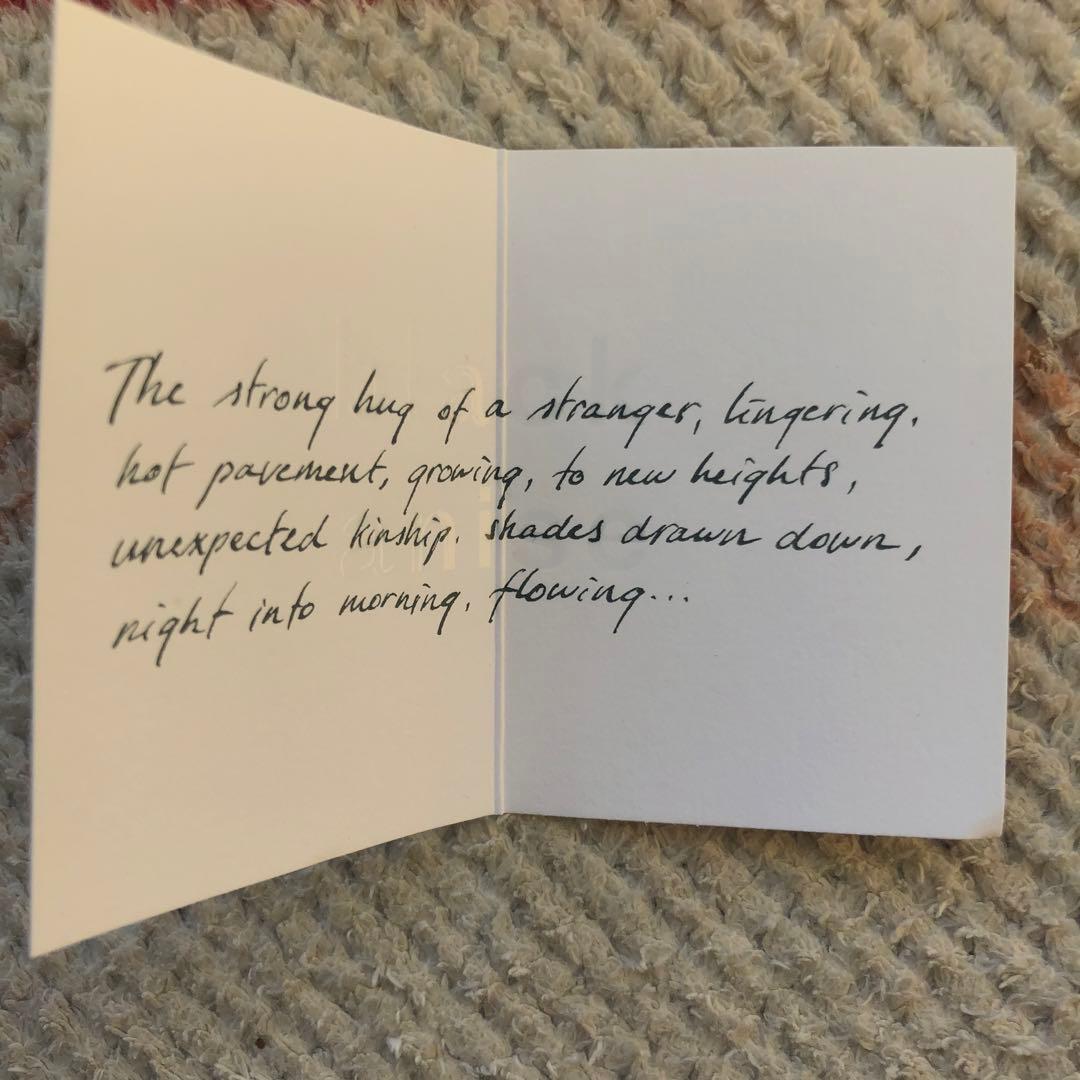 The strong hug of a stranger, lingering.
hot pavement, growing, to new heights,
unexpected kinship. shades drawn down,
night into morning. flowing...